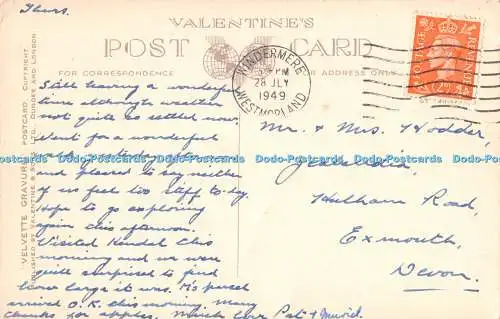 Thurs.
VALENTINE'S
POST CARD
FOR CORRESPONDENCE
FOR ADDRESS ONLY
VELVETTE GRAVURE POSTCARD. COPYRIGHT.
PUBLISHED BY VALENTINE & SONS, LTD., DUNDEE AND LONDON
WINDERMERE
PM
28 JLY
1949
WESTMORLAND
POSTAGE REVENUE
Still having a wonderful
time although weather
not quite so settled now.
Went for a wonderful
yesterday
and pleased to say neither
of us feel too stiff to-day.
Hope to go exploring
again this afternoon.
Visited Kendal this
morning and we were
quite surprised to find
how large it was. M's parcel
arrived O.K. this morning. Many
thanks for apples. Much love Pat & Muriel
Mr. & Mrs. Hodder,
Hulham Road,
Exmouth,
Devon.
Dodo-Postcards Dodo-Postcards Dodo-Postcards Dodo-Postcards Dodo-Postcards